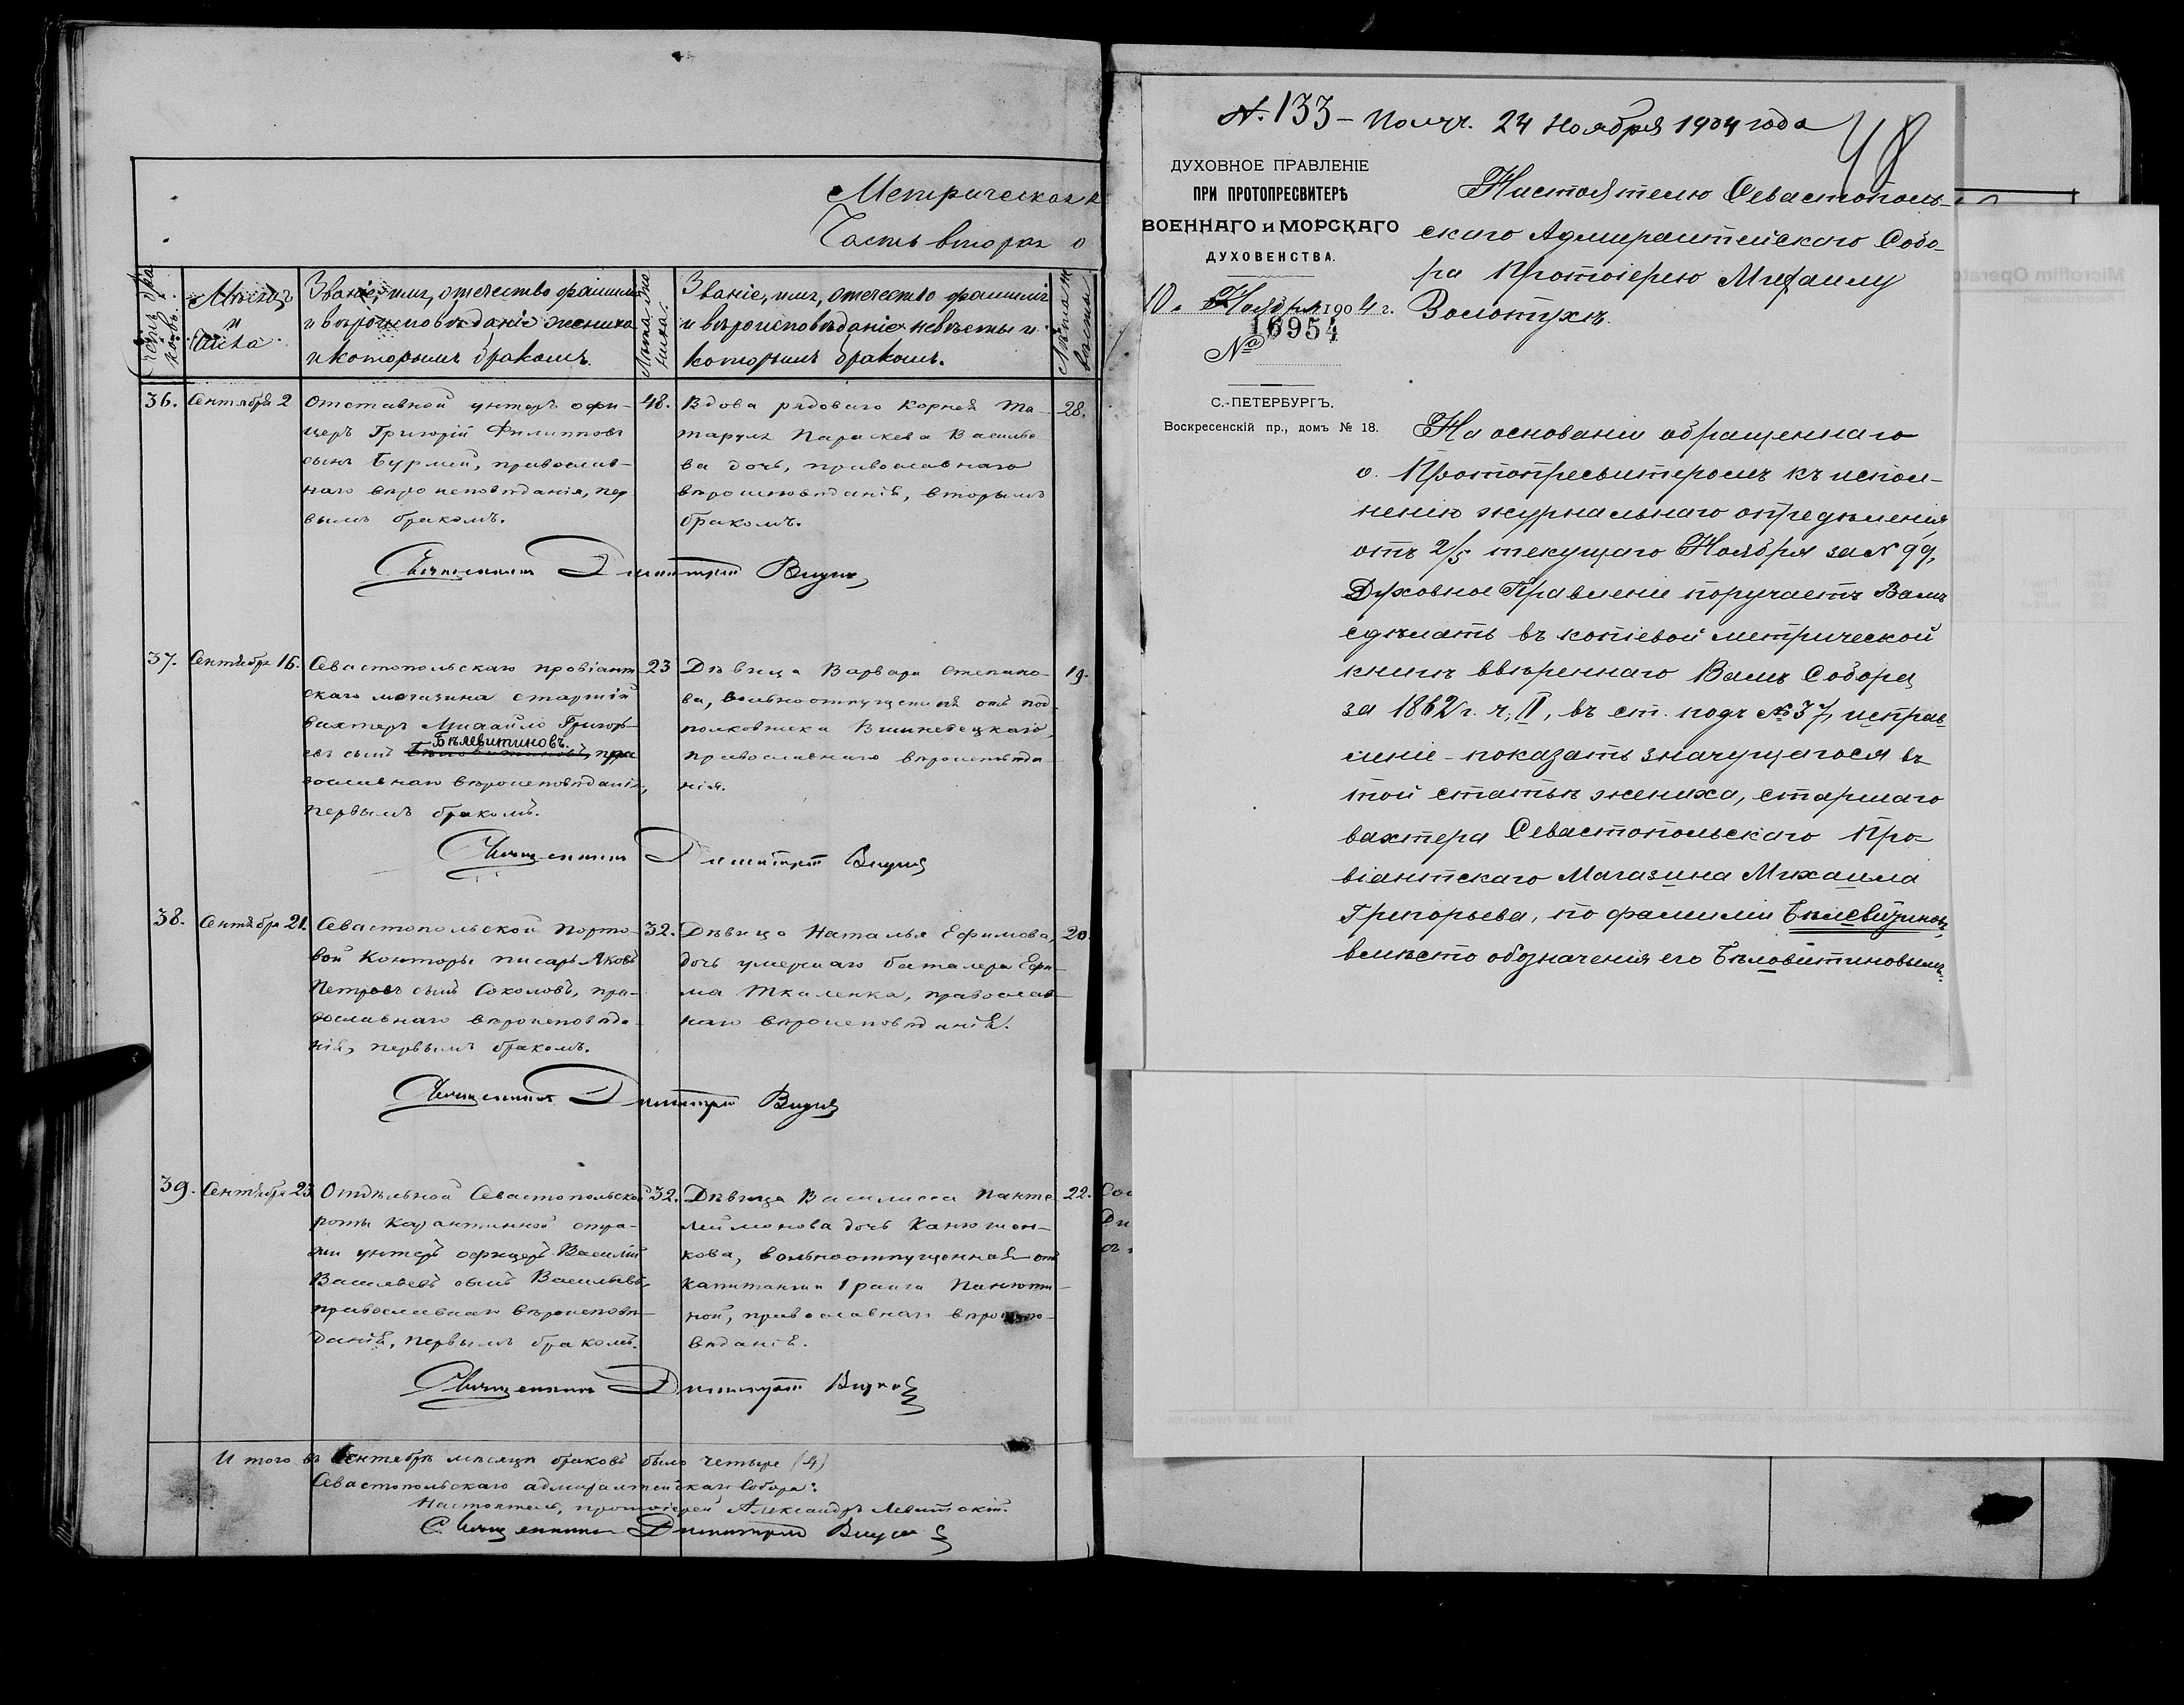 Метрическая к
Часть вторая о
Счетъ бра
ковъ.
Мѣсяцъ
и
числа.
Званіе, имя, отчество фамилія
и вѣроисповѣданіе жениха
и которымъ бракомъ.
Лѣта же
ниха.
Званіе, имя, отчество фамилія
и вѣроисповѣданіе невѣсты и
которымъ бракомъ.
Лѣта не
вѣсты.
36. Сентября 2
Отставной унтеръ офи-
церъ Григорій Филипповъ
сынъ Бурмей, православ-
наго вѣроисповѣданія, пер
вымъ бракомъ.
48.
Вдова рядоваго Корнея Та-
тарула Параскева Василье
ва дочь, православнаго
вѣроисповѣданія, вторымъ
бракомъ.
28.
Священникъ Димитрій
37. Сентября 16.
Севастопольскаго провіант
скаго магазина старшій
вахтеръ Михайло Григорь-
евъ сынъ Бѣловитиновъ, пра
Бѣлевитиновъ.
вославнаго вѣроисповѣданія,
первымъ бракомъ.
23
Дѣвица Варвара Степано-
ва, вольноотпущенная отъ под
полковника Вишневецкаго,
православнаго вѣроисповѣда
нія.
19.
Священникъ Димитрій
38. Сентября 21.
Севастопольской порто-
вой Конторы писарь Яковъ
Петровъ сынъ Соколовъ, пра-
вославнаго вѣроисповѣда-
нія, первымъ бракомъ.
32.
Дѣвица Наталья Ефимова,
дочь умершаго баталера Ефи-
ма Ткаленка, православ-
наго вѣроисповѣданія.
20.
Священникъ Димитрій
39. Сентября 23
Отдѣльной Севастопольской
роты Карантинной стра-
жи унтеръ офицеръ Василій
Васильевъ сынъ Васильевъ,
православнаго вѣроисповѣ-
данія, первымъ бракомъ.
32.
Дѣвица Василисса Панте
леймонова дочь Канюшен-
кова, вольноотпущенная отъ
капитанши 1 ранга Панюти-
ной, православнаго вѣроиспо-
вѣданія.
22.
Священникъ Димитрій
Итого въ Сентябрѣ мѣсяцѣ браковъ было четыре (4)
Севастопольскаго адмиралтейскаго Собора:
Настоятель, протоіерей Александръ Левитскій.
Священникъ Димитрій
№ 133 – Получ. 24 Ноября 1904 года
48
ДУХОВНОЕ ПРАВЛЕНІЕ
ПРИ ПРОТОПРЕСВИТЕРѢ
ВОЕННАГО и МОРСКАГО
ДУХОВЕНСТВА.
10. Ноября 1904 г.
№ 16954
С.-ПЕТЕРБУРГЪ.
Воскресенскій пр., домъ № 18.
Настоятелю Севастополь-
скаго Адмиралтейскаго Собо-
ра Протоіерею Михаилу
Золотухѣ.
На основаніи обращеннаго
о. Протопресвитеромъ къ испол-
ненію журнальнаго опредѣленія
отъ 2/5 текущаго Ноября за № 99,
Духовное Правленіе поручаетъ Вамъ
сдѣлать въ копіевой метрической
книгѣ ввѣреннаго Вамъ Собора
за 1862 г. ч. II, въ ст. подъ № 37, исправ
леніе - показать значущагося въ
той статьѣ жениха, старшаго
вахтера Севастопольскаго Про-
віантскаго Магазина Михаила
Григорьева, по фамиліи Бѣлевитиновъ,
вмѣсто обозначенія его Бѣловитиновымъ.